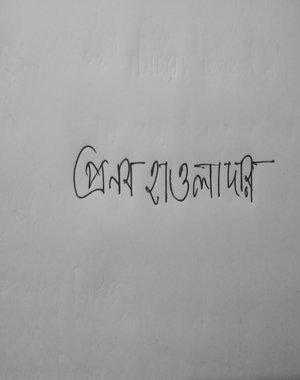 প্রেনব হাওলাদার